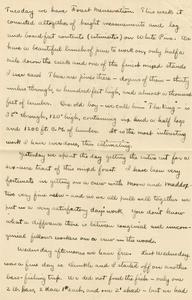 Tuesday we have Forest Mensuration. This week it
consisted altogether of height measurements and log
and board feet contents (estimates) on White Pine. We
have a beautiful bunch of pines to work on, only half a
mile down the creek and one of the finest mixed stands
I ever saw. There are pines there - dozens of them - thirty
inches through and a hundred feet high, and almost a thousand
feet of lumber. One old boy - we call him "The King" - is
35" through, 120' high, containing six and a half logs
and 1200 ft B.M. of lumber. It is the most interesting
work I have ever done, this estimating.
Yesterday we spent the day getting the entire cut for a
two-acre tract of this mixed forest. I have been very
fortunate in getting on a crew with Moon and Maddox,
two very fine men - and as we all pull well together we
put in a very satisfactory day's work. You don't know
what a difference there is between congenial and uncon-
genial fellows when on a crew in the woods.
Wednesday afternoons we have free. This Wednesday
was a fine day so
bass-fishing trip. We did not find the fish - only one
2 lb. bass, 2 dace 1 lb each, and one 2' shad - but we had